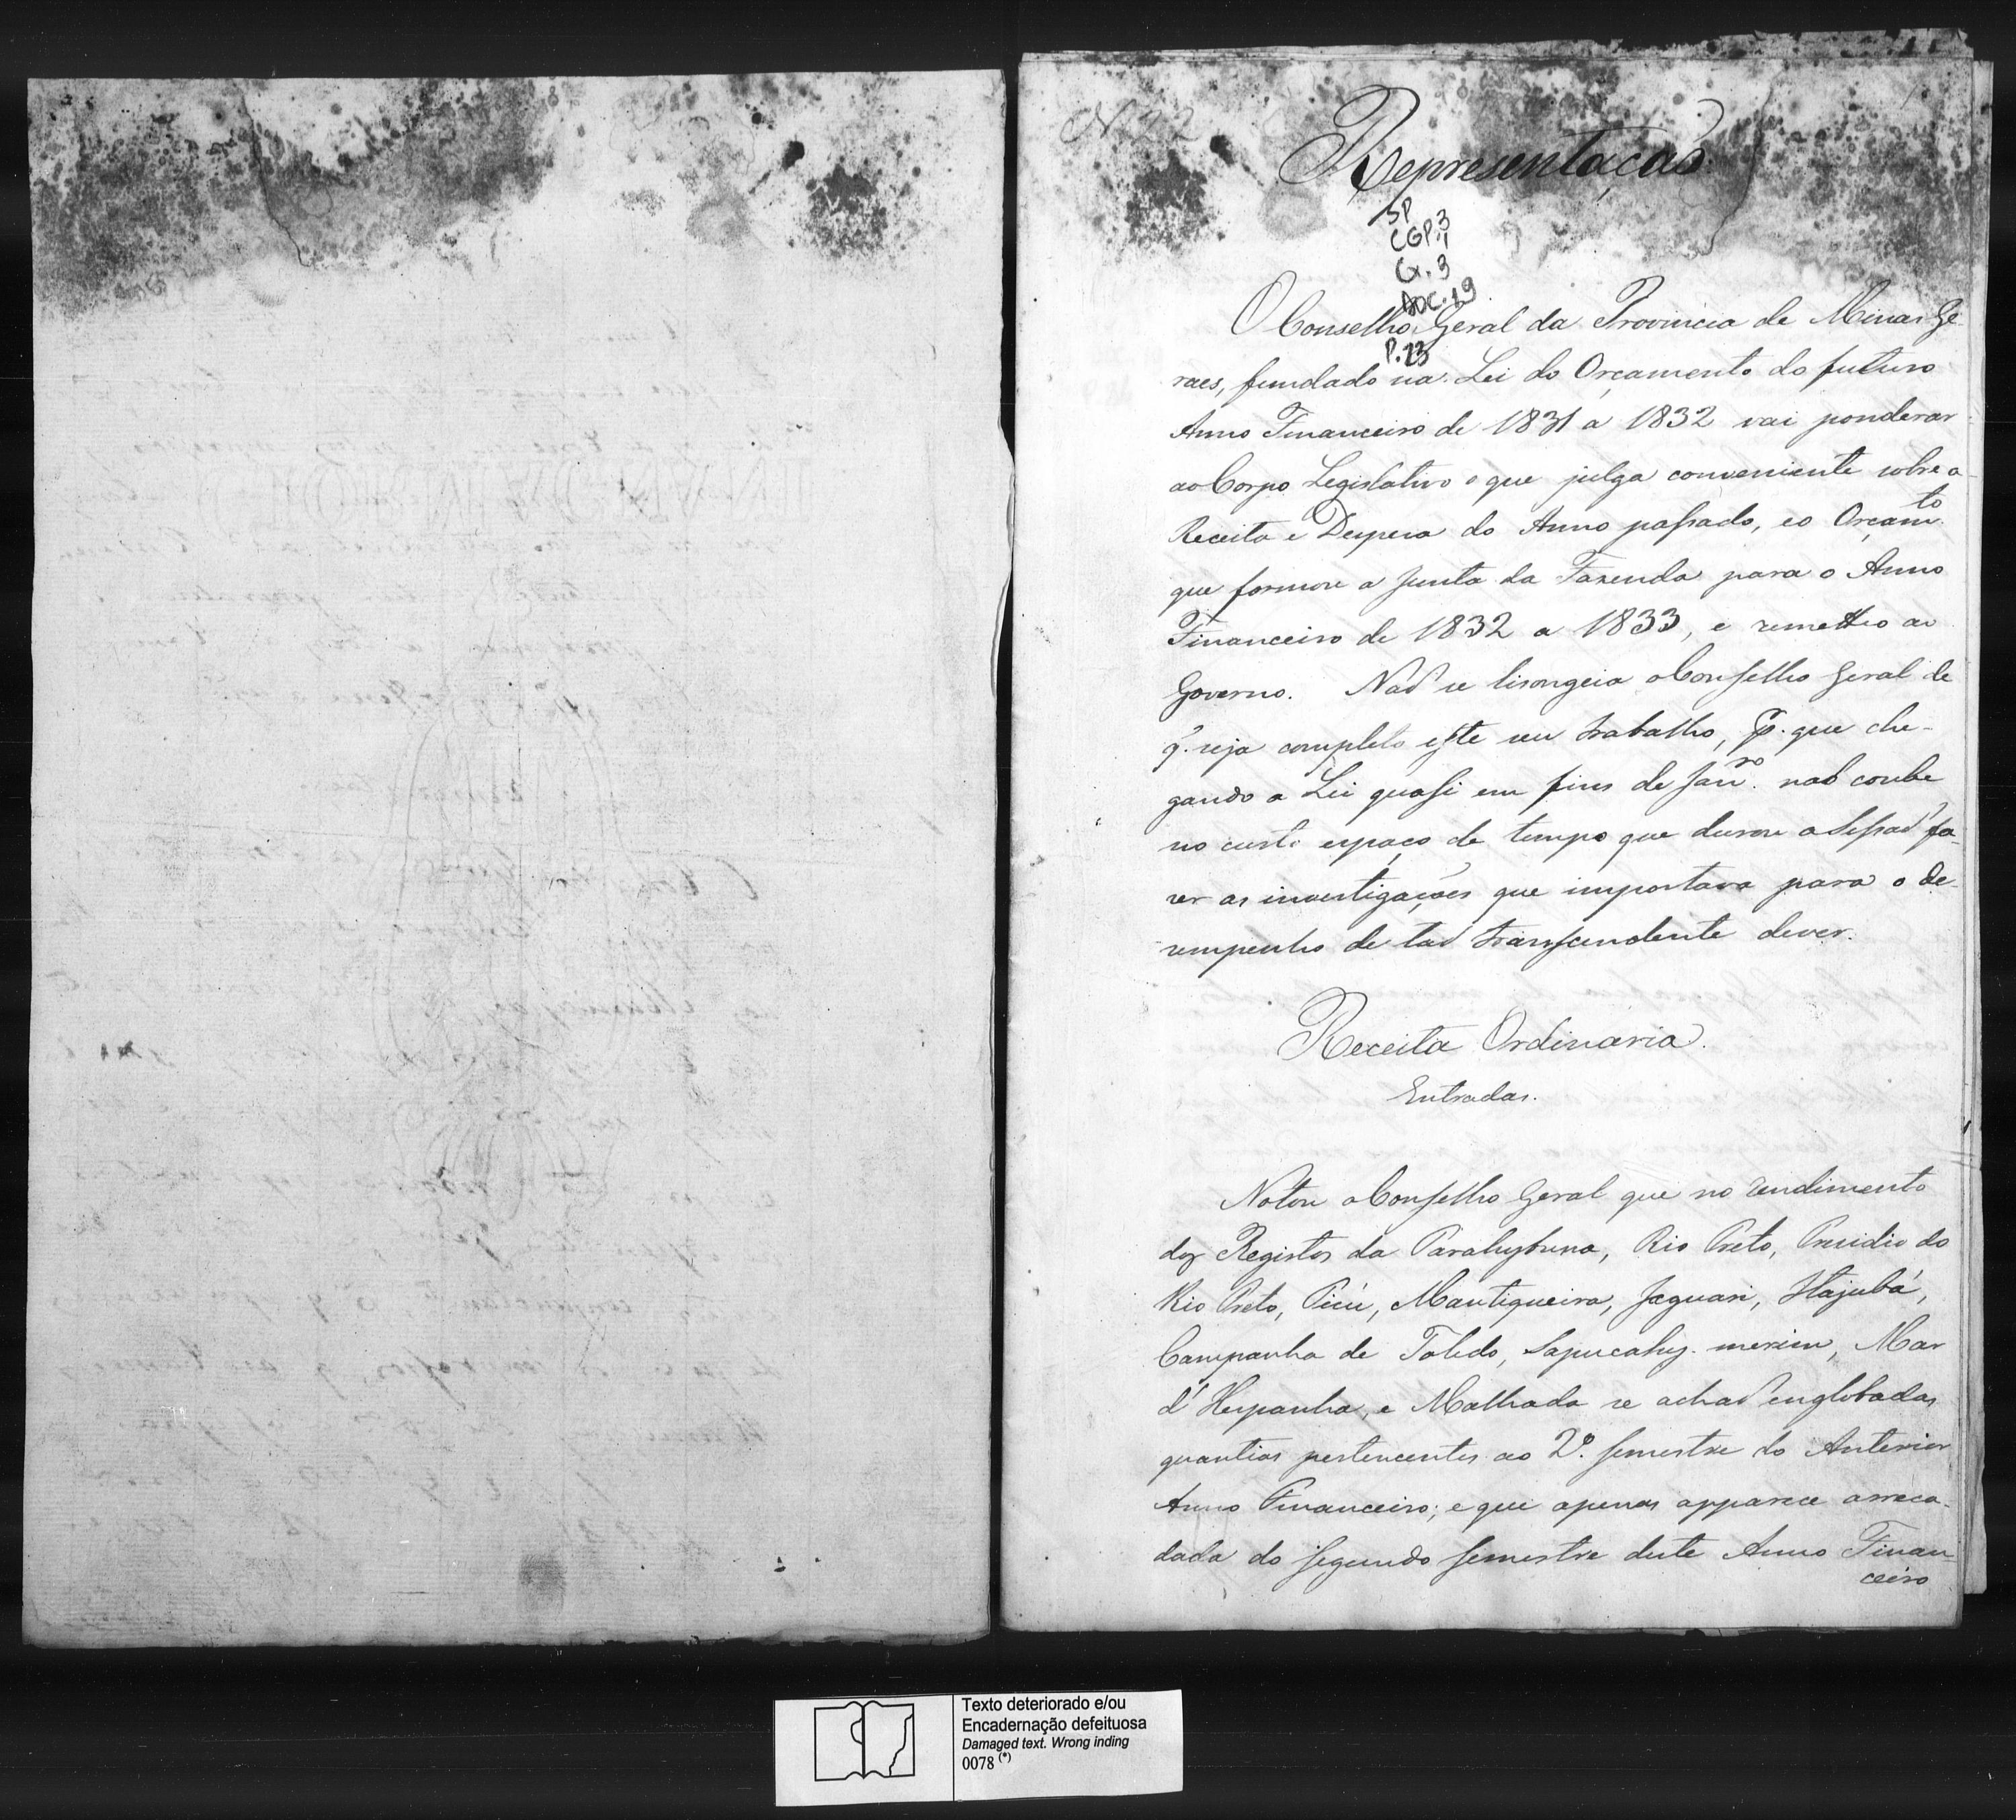 N 22
Representaçaõ
SP
CGP. 3
Cx. 3
DOC. 19
P. 23
O Conselho Geral da Provincia de Minas Ge-
raes, fundado na Lei do Orçamento do futuro
Anno Financeiro de 1831 a 1832 vai ponderar
ao Corpo Legislativo o que julga conveniente sobre a
Receita e Despesa do Anno passado, e o Orçamto.
que formou a Junta da Fazenda para o Anno
Financeiro de 1832 a 1833, e remetteo ao
Governo. Naõ se lisongeia o Conselho Geral de
q. seja completo este seu trabalho, p. que che-
gando a Lei quasi em fins de Janro. naõ coube
no curto espaço de tempo que durou a Sessaõ fa-
zer as investigaçoes que importava para o de-
sempenho de taõ transcendente dever.
Receita Ordinaria.
Entradas.
Notou o Conselho Geral que no rendimento
dos Registos da Parahybuna, Rio Preto, Presidio do
Rio Preto, Picú, Mantiqueira, Jaguari, Itajubá,
Campanha de Toledo, Sapucahy-mirim, Mar
d'Hespanha, e Malhada se achaõ englobadas
quantias pertencentes ao 2º. semestre do Anterior
Anno Financeiro; e que apenas apparece arreca-
dada do segundo semestre deste Anno Finan
ceiro
Texto deteriorado e/ou
Encadernação defeituosa
Damaged text. Wrong inding
0078 (*)